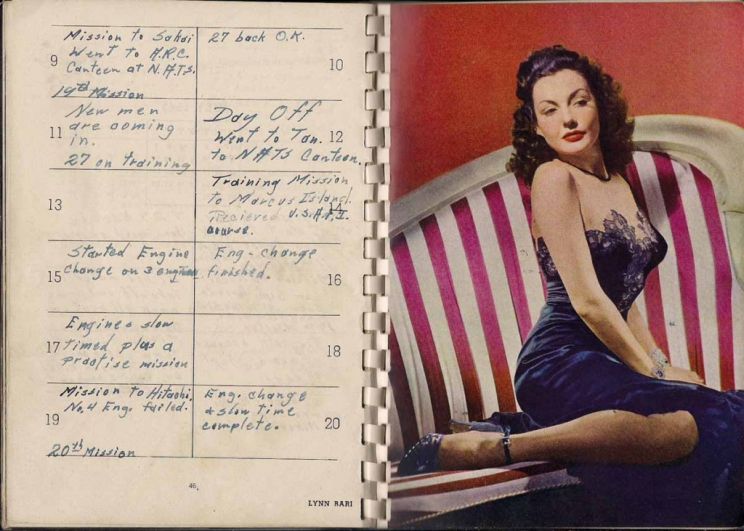 9
Mission to Sakai
Went to A.R.C.
Canteen at N.A.T.S.
19th Mission
10
27 back O.K.
11
New men
are coming
in.
27 on training
12
Day Off
Went to Tan.
to NATS Canteen.
13
14
Training Mission
to Marcus Island.
Recieved U.S.A.F.I.
course.
15
Started Engine
Change on 3 engines
16
Eng-change
finished.
17
Engines slow
timed plus a
practise mission
18
19
Mission to Hitachi.
No. 4 Eng. failed.
20th Mission
20
Eng. change
& slow time
complete.
46.
LYNN BARI